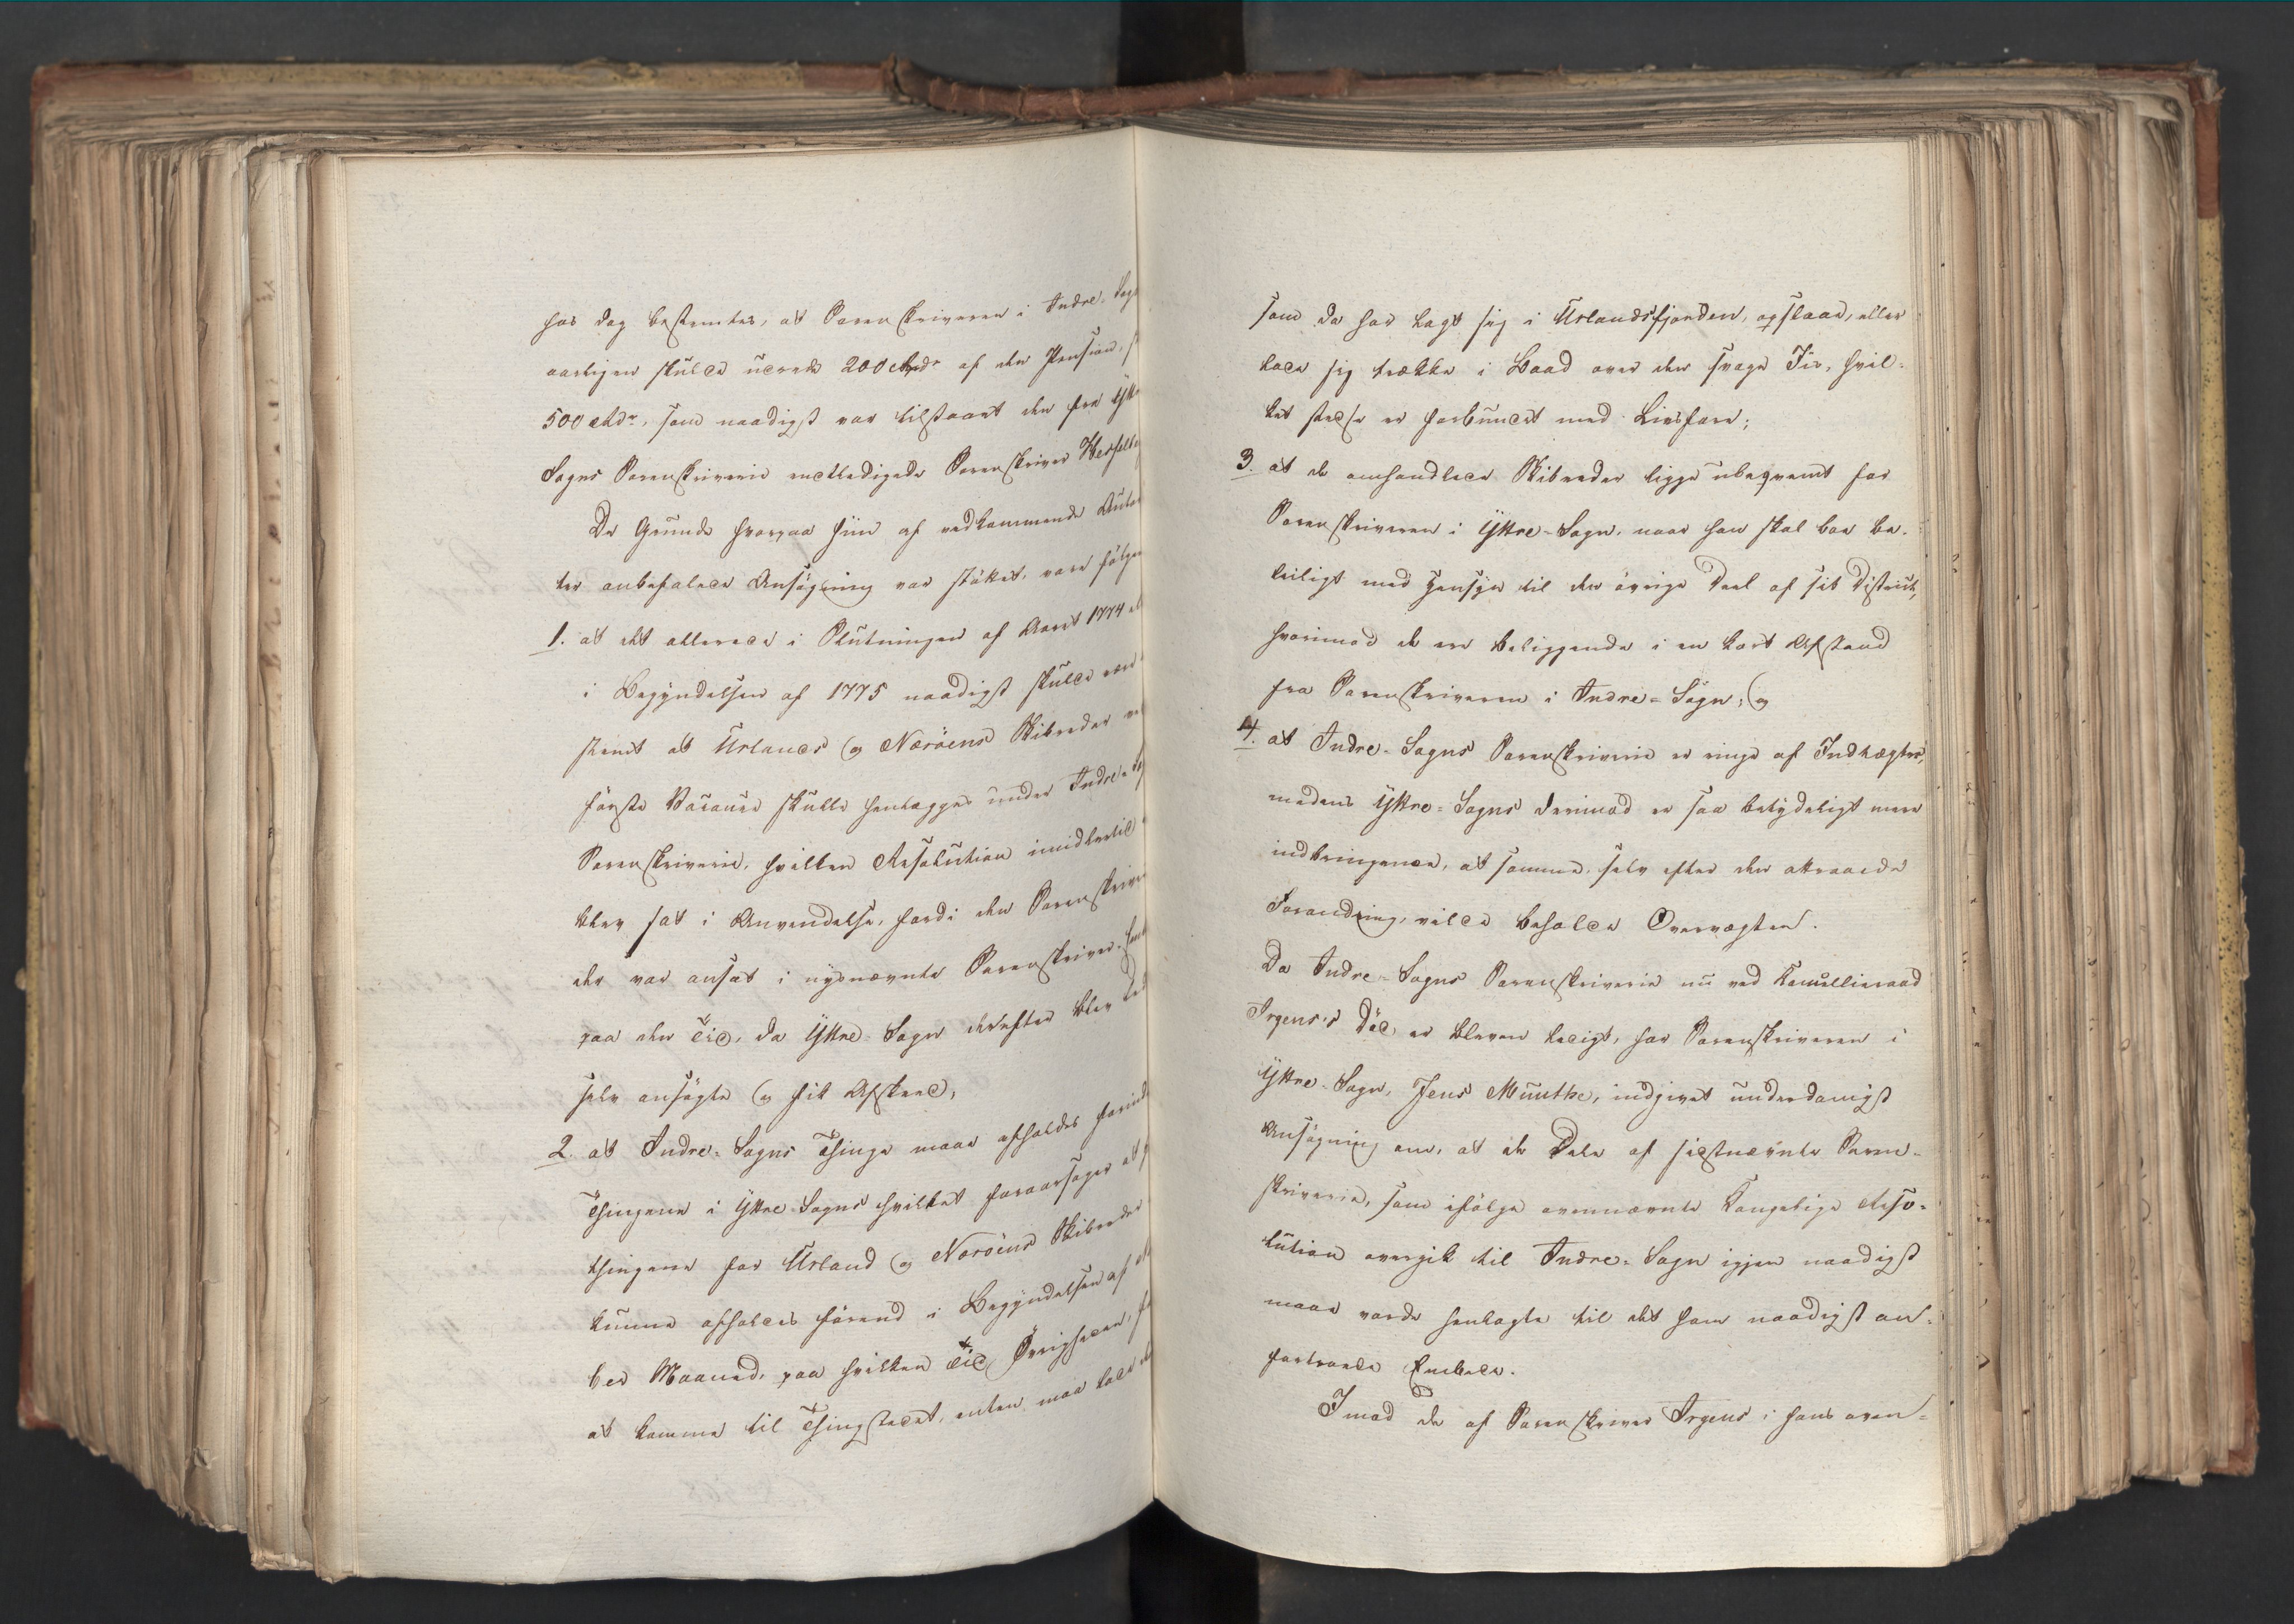 hos dog bestemtes, at Sorenskriveren i Indre-Sogn
aarligen skulde udrede 200 Rdr af den Pension, st
500 Rdr, som naadigst var tilstaaet den fra Yttre
Sogns Sorenskriverie entledigede Sorenskriver Hersleb
De Grunde hvorpaa hiin af vedkommende Autori
ter anbefalede Ansøgning var støttet, vare følgen
1. at det allerede i Slutningen af Aaret 1774 el
i Begyndelsen af 1775 naadigst skulde være
stemt at Urlands og Nærøens Skibreder ved
første Vacance skulle henlægges under Indre-Sogn
Sorenskriverie, hvilken Resolution imidlertid
blev sat i Anvendelse, fordi den Sorenskriver
der var ansat i nysnævnte Sorenskriver-Emb
paa den Tid, da Yttre-Sogn derefter blev led
selv ansøgte og fik Afskeed;
2. at Indre-Sogns Thinge maae afholdes forinden
Thingene i Yttre-Sogns hvilket foraarsager at
Thingene for Urland og Nærøens Skibreder
kunne afholdes førend i Begyndelsen af
ber Maaned, paa hvilken Tid Øvrigheden, for
at komme til Thingstedet, enten maa lade
som da har lagt sig i Urlandsfjorden, opslaae, eller
lade sig trække i Baad over den svage Iis, hvil-
ket sidste er forbundet med Livsfare;
3. at de omhandlede Skibreder ligge ubeqvemt for
Sorenskriveren i Yttre-Sogn, naar han skal boe be-
leiligt med Hensyn til den øvrige Deel af sit District,
hvorimod de ere beliggende i en kort Afstand
fra Sorenskriveren i Indre-Sogn; og
4. at Indre-Sogns Sorenskriverie er ringe af Indtægter,
medens Yttre-Sogns derimod er saa betydeligt mere
indbringende, at samme, selv efter den attraaede
Forandring, vilde beholde Overvægten.
Da Indre-Sogns Sorenskriverie nu ved Kancellieraad
Irgens's Død er bleven ledigt, har Sorenskriveren i
Yttre-Sogn, Jens Munthe, indgivet underdanigst
Ansøgning om, at de Dele af sidstnævnte Soren-
skriverie, som ifølge ovennævnte Kongelige Reso-
lution overgik til Indre-Sogn igjen naadigst
maae vorde henlagte til det ham naadigst an-
fortroede Embede.
Imod de af Sorenskriver Irgens i hans oven-